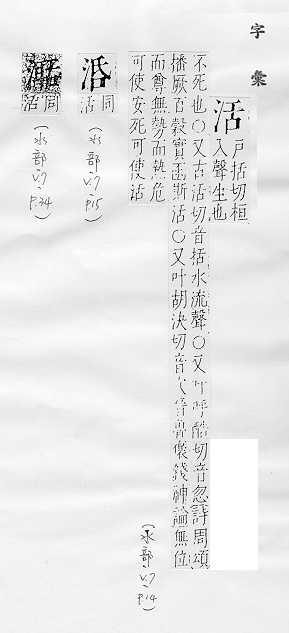 字彙
活 戶括切桓
入聲生也
不死也○又古活切音括水流聲○又叶呼酷切音忽詩周頌
播厥百穀實函斯活○又叶胡決切音穴晉魯褒錢神論無位
而尊無勢而熱危
可使安死可使活
(水部、V.7、P.14)
同
活
(水部、V.7、P.15)
同
活
(水部、V.7、P.34)